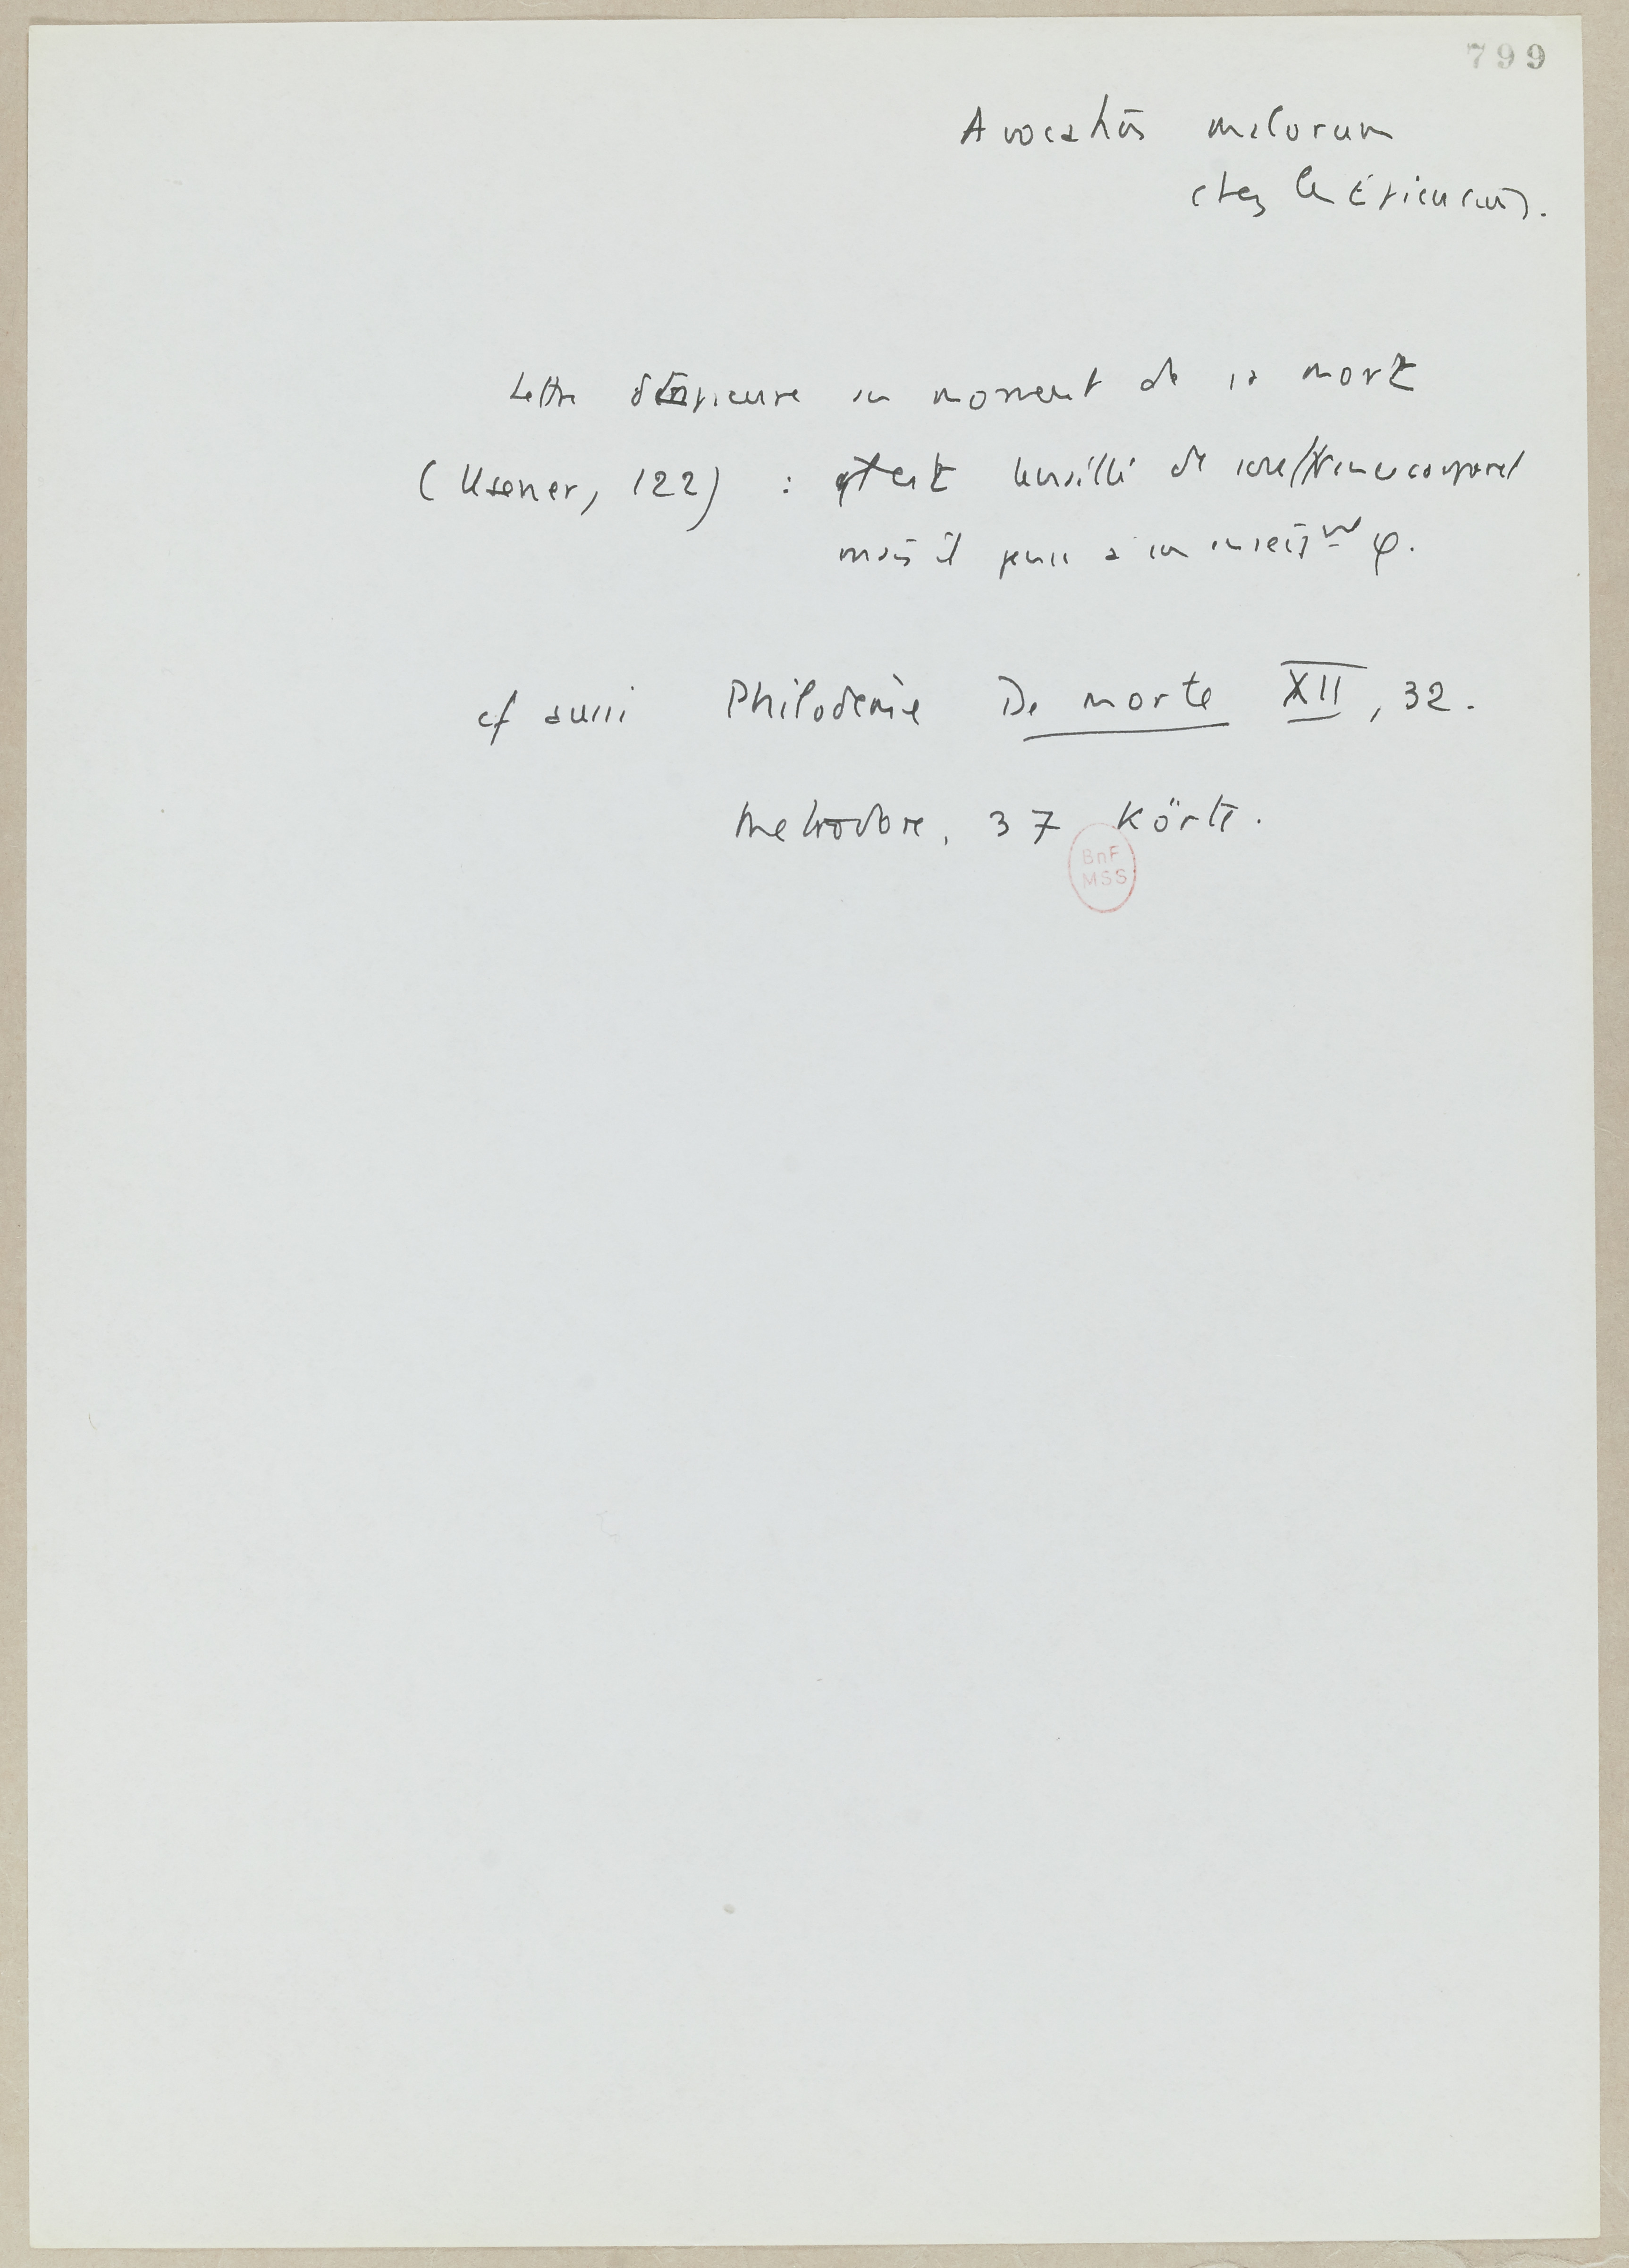 799
Avocatio malorum
chez les Épicuriens.
Lettre d'Epicure au moment de sa mort
(Usener, 122) : tenaillé de souffrances corporel
mais il pense à son enseignt φ.
cf aussi Philodème De morte XII, 32.
Metrodore, 37 Körte.
BnF
MSS